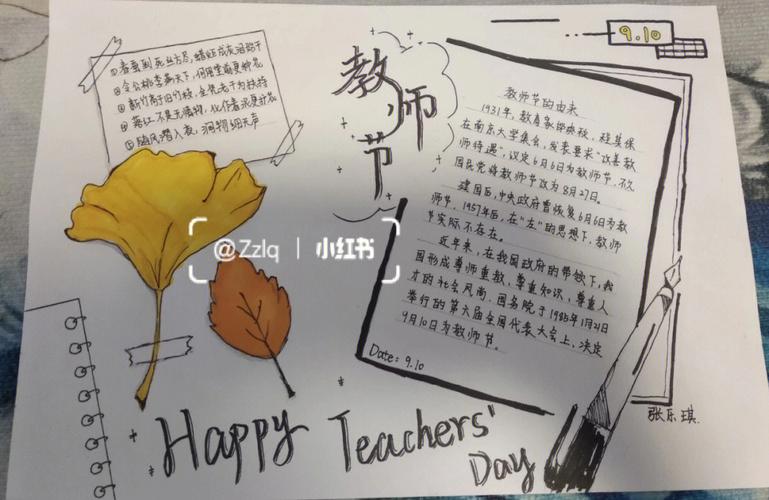 ①春蚕到死丝方尽,蜡炬成灰泪始干
②令公桃李满天下,何用堂前更种花
③新竹高于旧竹枝,全凭老干为扶持
④落红不是无情物,化作春泥更护花
⑤随风潜入夜,润物细无声
教师节
9.10
教师节的由来
1931年,教育家邰爽秋、程其保
在南京大学集会,发表要求"改善教
师待遇",议定6月6日为教师节,不久
国民党将教师节改为8月27日。
建国后,中央政府曾恢复6月6日为教
师节,1957年后,在"左"的思想下,教师
节实际不存在。
近年来,在我国政府的带领下,我
国形成尊师重教,尊重知识,尊重人
才的社会风尚。国务院于1985年1月21日
举行的第六届全国代表大会上,决定
9月10日为教师节。
Date: 9.10
@Zzlq | 小红书
张乐琪
Happy Teachers'
Day